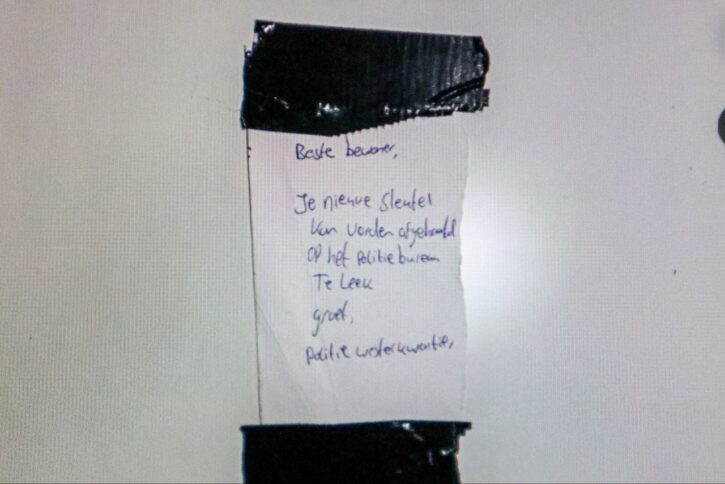 Beste bewoner,
Je nieuwe sleutel
kan worden afgehaald
op het politiebureau
Te Leek
groet,
politie westerkwartier,